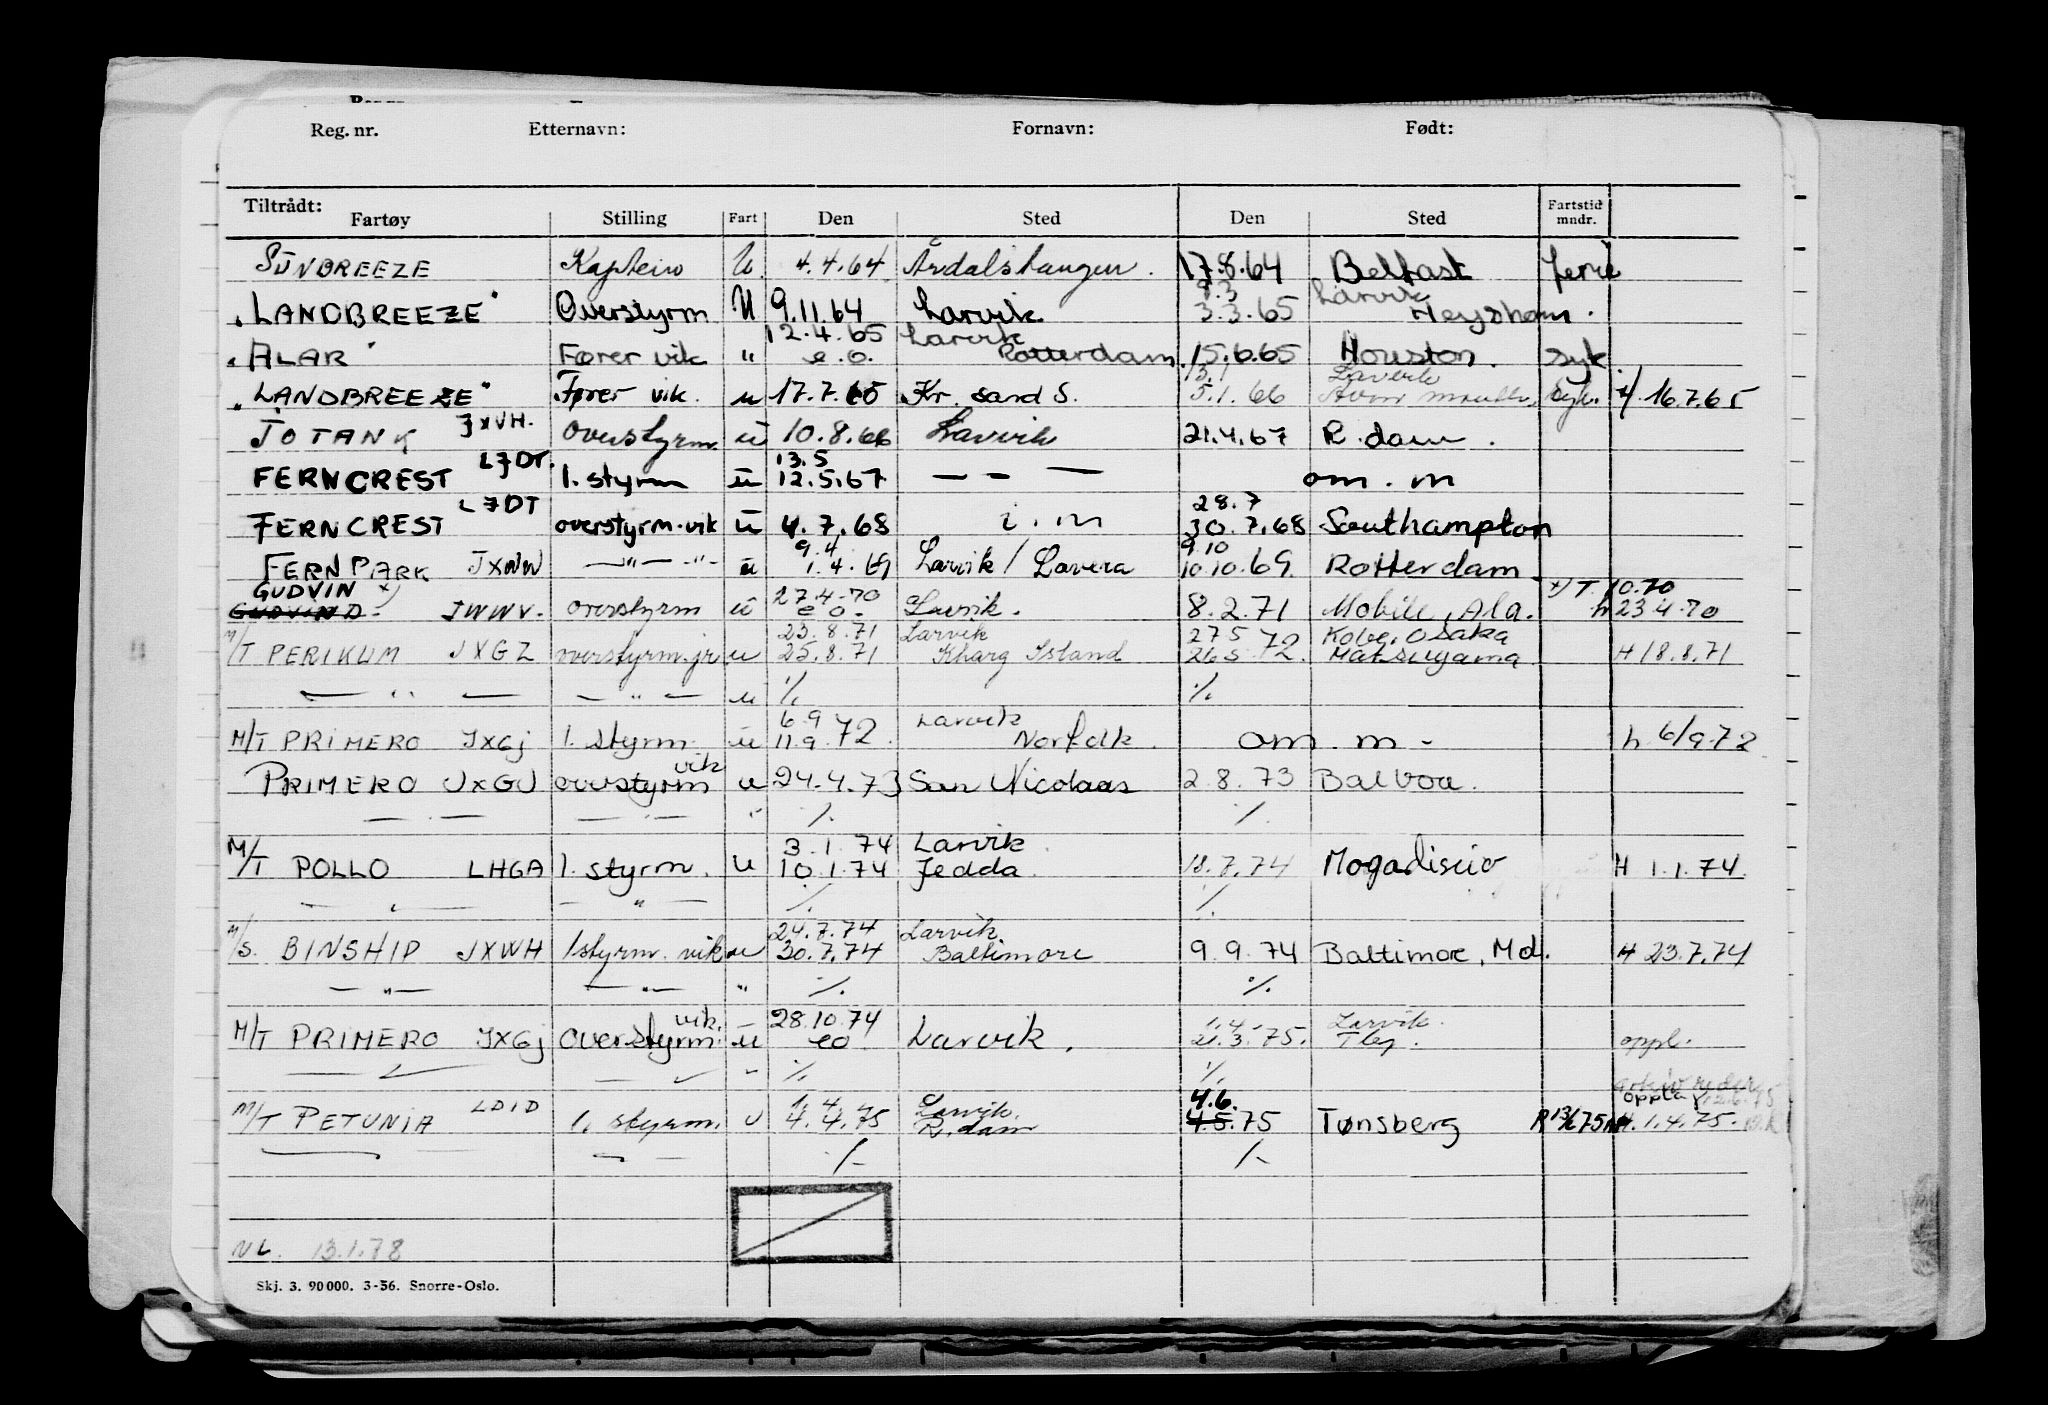 Reg. nr. Etternavn: Fornavn: Født:
Tiltrådt: Fartøy Stilling Fart Den Sted Den Sted Fartstid mndr.
SUNBREEZE Kaptein U. 4.4.64 Årdalstangen. 17.8.64 Belfast ferie
8.3 Larvik
"LANDBREEZE" Overstyrm U 9.11.64 Larvik 3.3.65 Heysham.
12.4.65 Larvik
"ALAR" Fører vik " e.o. Rotterdam 15.6.65 Houston. syk
13.1 Larvik
"LANDBREEZE" Fører vik. u 17.7.65 Kr. sand S. 5.1.66 Syk. 16.7.65
JOTANK JXVH. Overstyrm. u 10.8.66 Larvik 21.4.67 R.dam.
LJDT. 13.5
FERNCREST 1. styrm u 12.5.67 — — — om. m
L7DT 28.7
FERNCREST overstyrm. vik u 4.7.68 i. m 30.7.68 Southampton
9.4 9.10
FERNPARK JXNW —"— -"- u 1.4.69 Larvik / Lavera 10.10.69. Rotterdam
GUDVIN x) 27.4.70 x) T. 10.70
GUDVIND - JWWV. overstyrm u e o. Larvik. 8.2.71 Mobile, Ala. h 23.4.70
23.8.71 Larvik 27.5 Kobe, Osaka
M/T PERIKUM JXGZ overstyrm. jr u 25.8.71 Kharg Island 26.5 72. Matsuyama H 18.8.71
— " — — " — u ·/. ·/.
6.9 Larvik
M/T PRIMERO JXGj 1. styrm. u 11.9 72. Norfolk. om. m - h. 6/9.72
vik
PRIMERO JXGJ overstyrm u 24.4.73 San Nicolaas 2.8.73 Balboa.
— " — — " — " ·/. ·/.
3.1.74 Larvik.
M/T POLLO LHGA 1. styrm. u 10.1.74 Jedda. 18.7.74 Mogadiscio H 1.1.74.
— " — — " — ·/. ·/.
24.7.74 Larvik
M/S. BINSHIP JXWH 1 styrm. vik u 30.7.74 Baltimore 9.9.74 Baltimore, Md. H 23.7.74
— " — — " — " ·/. ·/.
vik. 28.10.74 1.4 Larvik.
M/T PRIMERO JXGj Overstyrm. u eo Larvik. 21.3.75. oppl.
— " — — " — " ·/. ·/.
1.4 Larvik. 4.6. oppl
M/T PETUNIA LDID 1. styrm. u 4.4.75 R.dam 4.5.75 Tønsberg R 13/6 75 H. 1.4.75.
— — — — ·/. ·/.
NL. 13.1.78
Skj. 3. 90 000. 3-56. Snorre-Oslo.